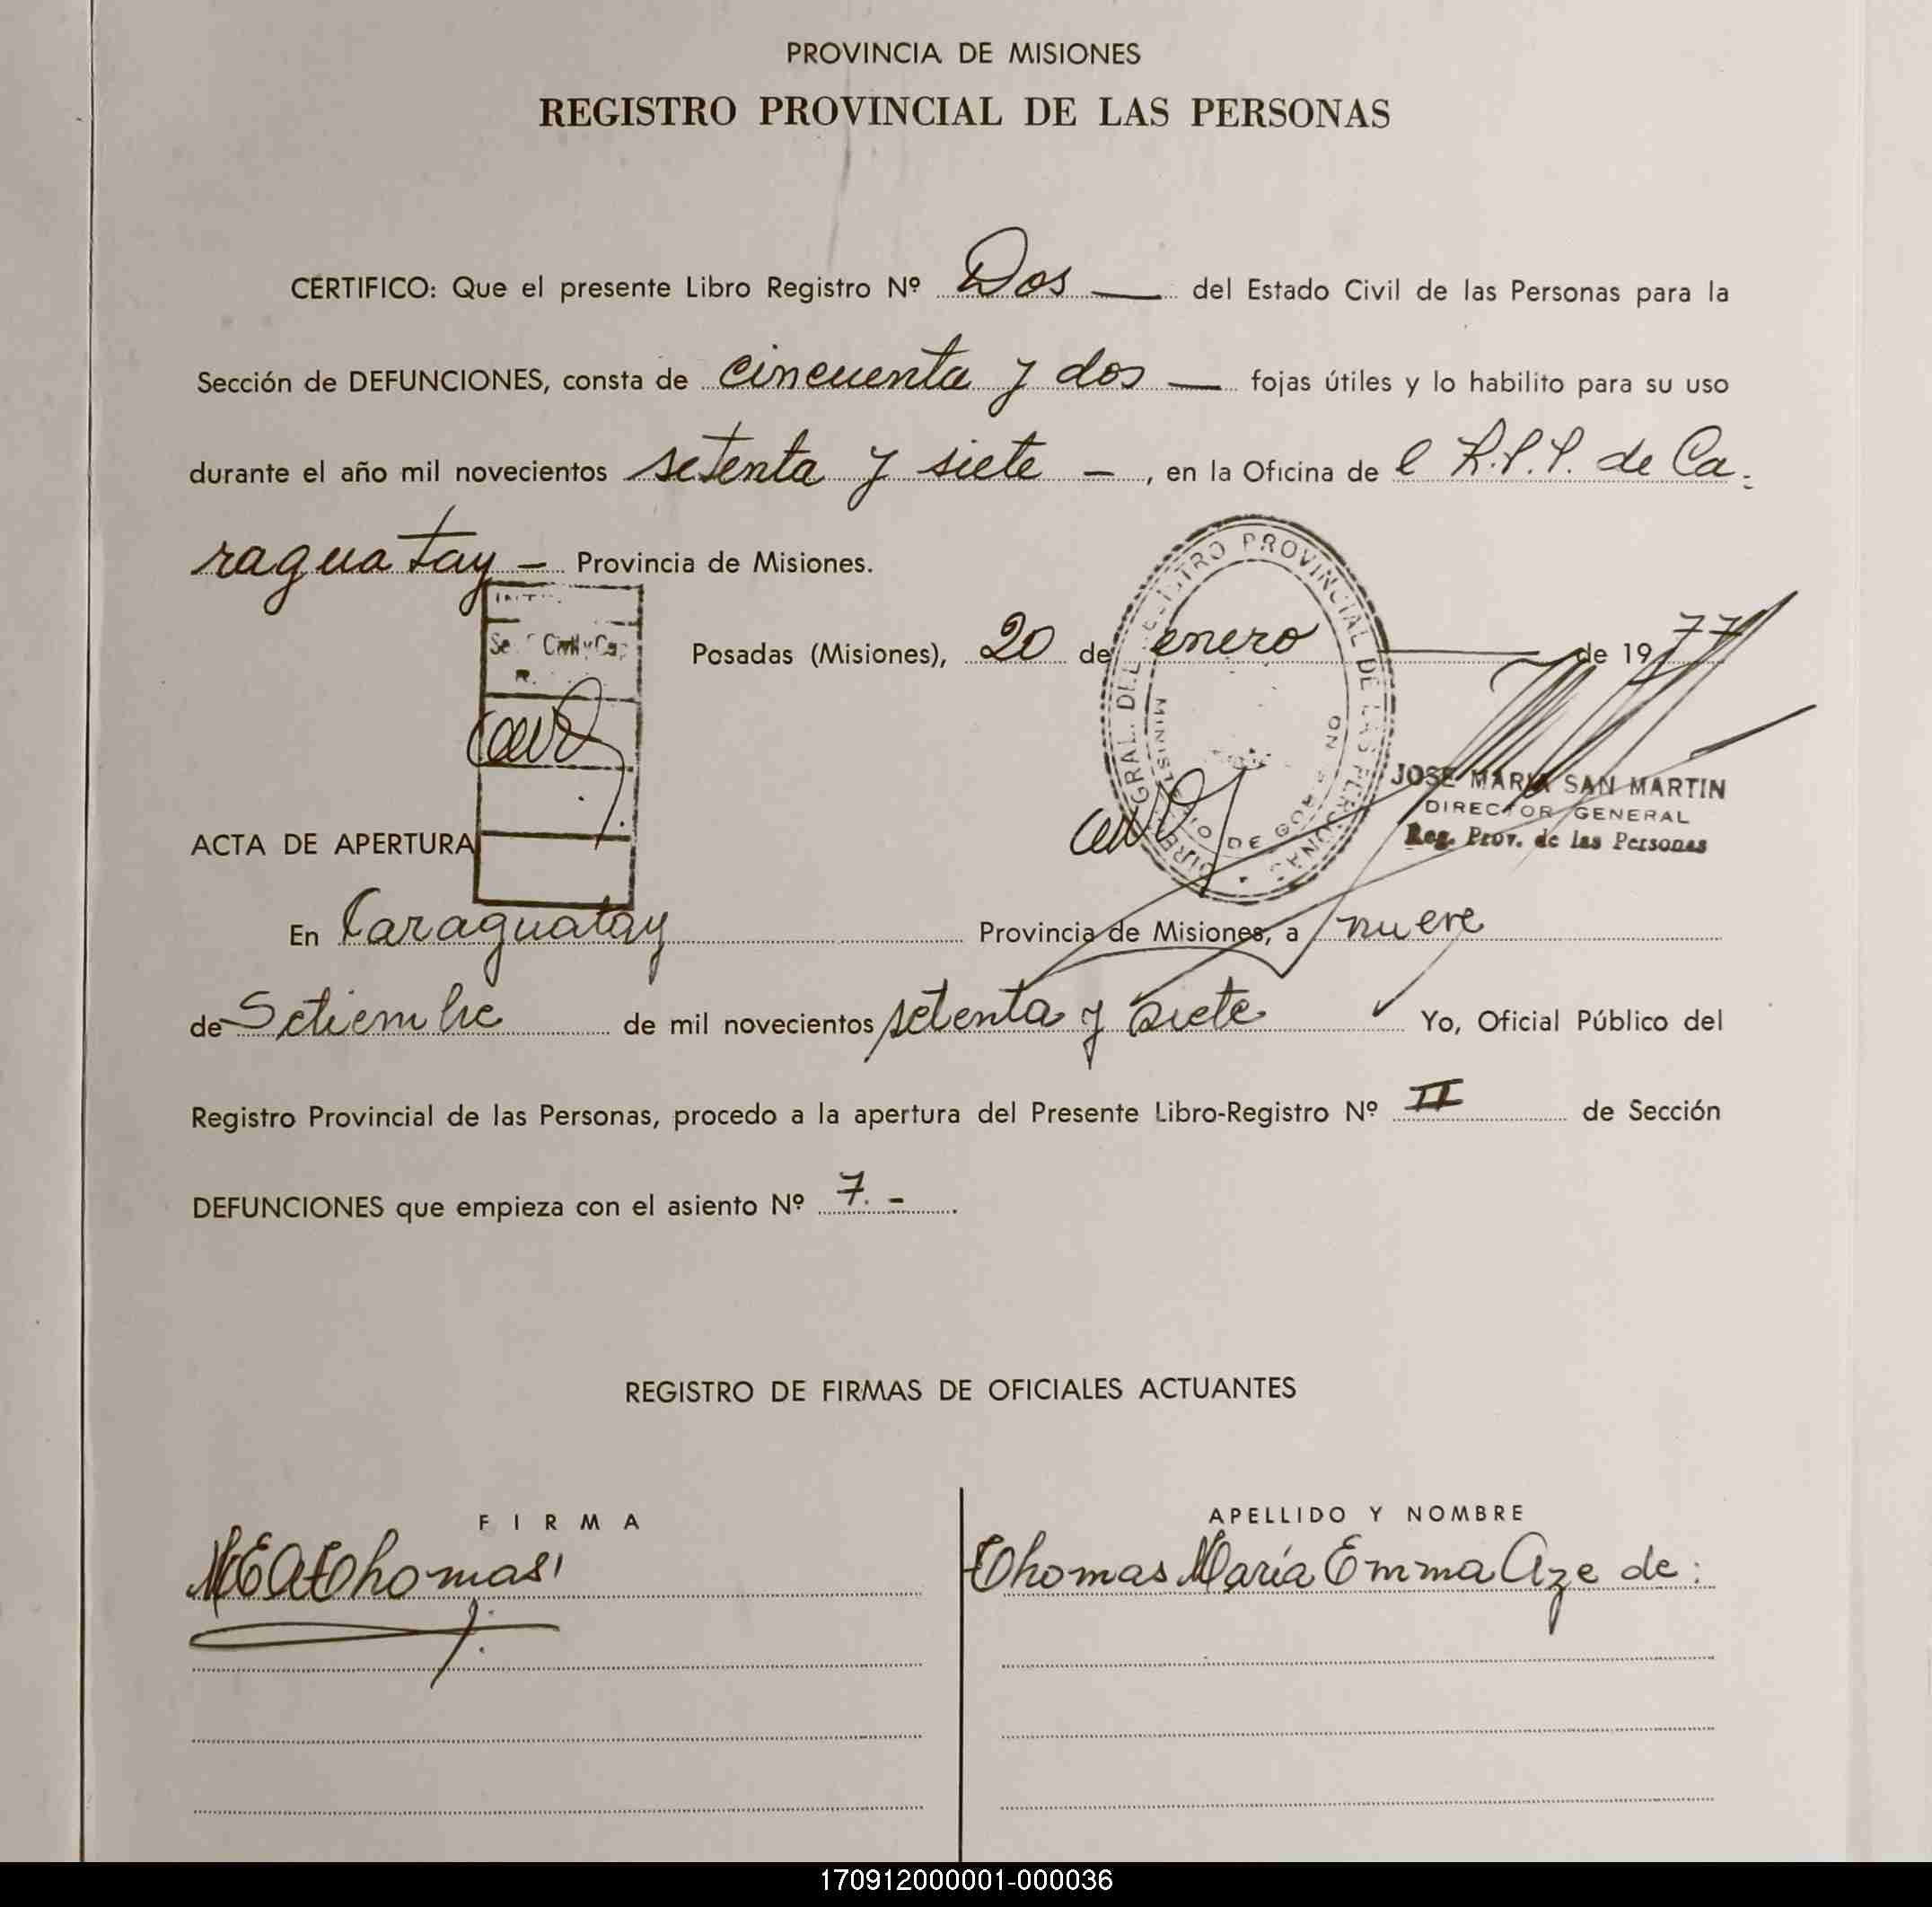 PROVINCIA DE MISIONES
REGISTRO PROVINCIAL DE LAS PERSONAS
CERTIFICO: Que el presente Libro Registro Nº Dos — del Estado Civil de las Personas para la
Sección de DEFUNCIONES, consta de cincuenta y dos — fojas útiles y lo habilito para su uso
durante el año mil novecientos setenta y siete - , en la Oficina de l R.P.P. de Ca-
raguatay - Provincia de Misiones.
Posadas (Misiones), 20 de enero de 1977
REGISTRO PROVINCIAL DE LAS PERSONAS
MINISTERIO DE GOBIERNO
JOSE MARIA SAN MARTIN
DIRECTOR GENERAL
Reg. Prov. de las Personas
ACTA DE APERTURA
En Caraguatay Provincia de Misiones, a nueve
de Setiembre de mil novecientos setenta y siete Yo, Oficial Público del
Registro Provincial de las Personas, procedo a la apertura del Presente Libro-Registro Nº II de Sección
DEFUNCIONES que empieza con el asiento Nº 7.-.
REGISTRO DE FIRMAS DE OFICIALES ACTUANTES
FIRMA
APELLIDO Y NOMBRE
MEAThomas
Thomas María Emma Aze de:
170912000001-000036